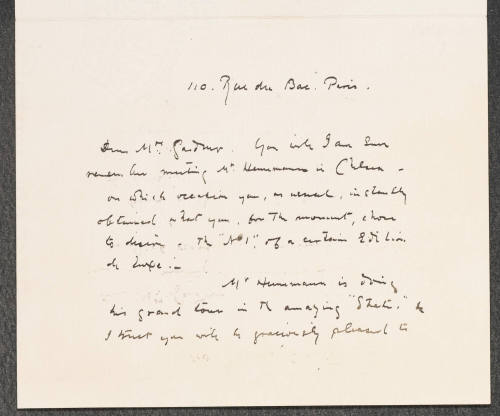 110. Rue du Bac. Paris.
Dear Mrs. Gardner. You will I am sure
remember meeting Mr Heinemann in Chelsea -
on which occasion you, as usual, instantly
obtained what you, for the moment, chose
to desire - the "No 1" of a certain Edition
de luxe! -
Mr Heinemann is doing
his grand tour in the amazing "States."
I trust you will be graciously pleased to